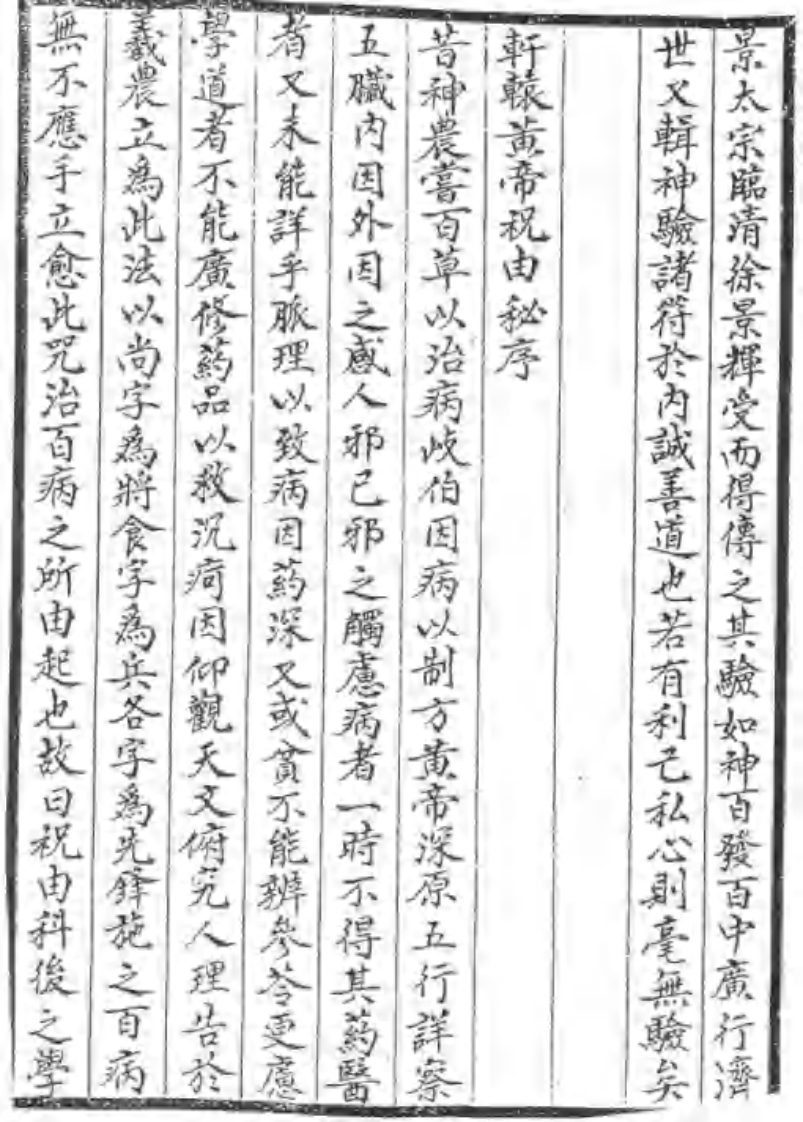 景太宗臨清徐景輝受而得傳之其驗如神百發百中廣行濟
世又輯神驗諸符於內誠善道也若有利己私心則毫無驗矣
軒轅黃帝祝由秘序
昔神農嘗百草以治病岐伯因病以制方黃帝深原五行詳察
五臟內因外因之感人邪己邪之觸慮病者一時不得其葯醫
者又未能詳乎脈理以致病因葯深又或貧不能辨參苓更慮
學道者不能廣修葯品以救沉疴因仰觀天文俯究人理告於
羲農立為此法以尚字為將食字為兵各字為先鋒施之百病
無不應手立愈此咒治百病之所由起也故曰祝由科後之學